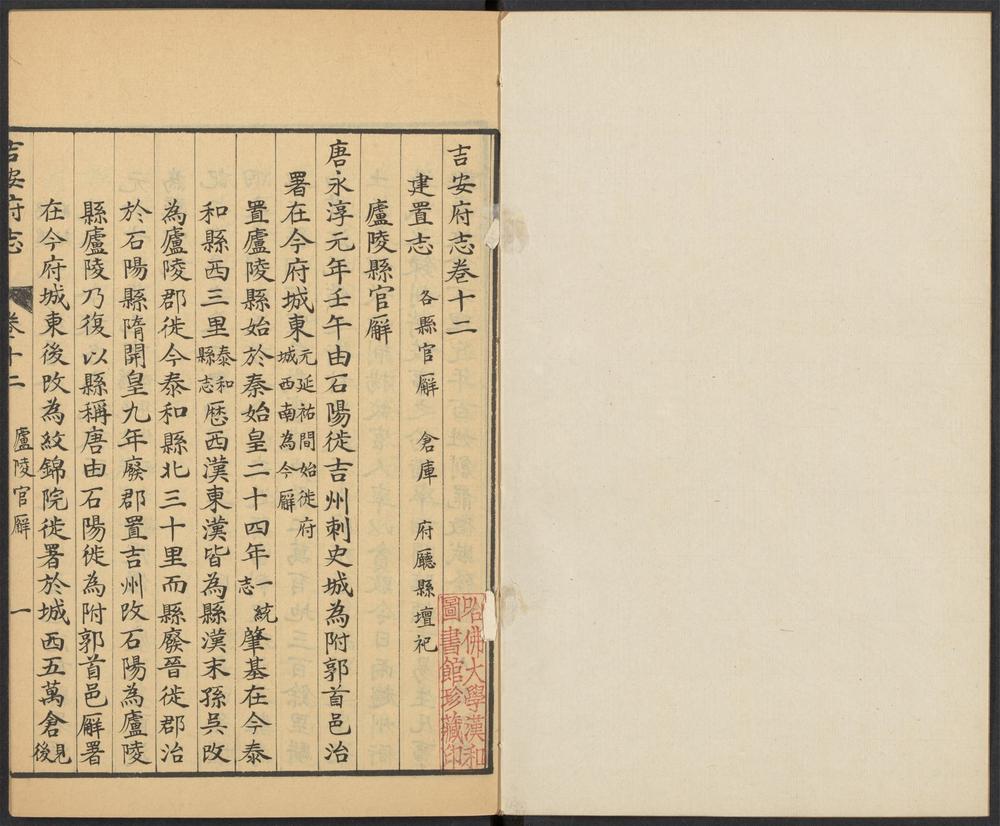 吉安府志卷十二
建置志 各縣官廨 倉庫 府廳縣壇祀
廬陵縣官廨
唐永淳元年壬午由石陽徙吉州刺史城為附郭首邑治
署在今府城東元延祐間始徙府城西南為今廨
置廬陵縣始於秦始皇二十四年一統志肇基在今泰
和縣西三里泰和縣志歷西漢東漢皆為縣漢末孫吳改
為廬陵郡徙今泰和縣北三十里而縣廢晉徙郡治
於石陽縣隋開皇九年廢郡置吉州改石陽為廬陵
縣廬陵乃復以縣稱唐由石陽徙為附郭首邑廨署
在今府城東後改為紋錦院徙署於城西五萬倉見後
吉安府志 卷十二 廬陵官廨 一
哈佛大學漢和
圖書館珍藏印